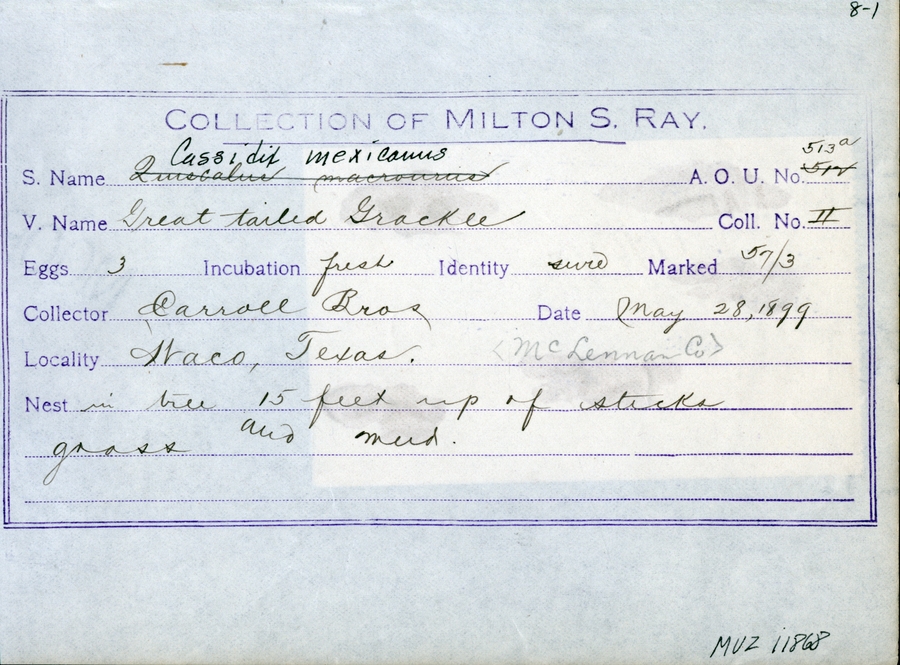 8-1
COLLECTION OF MILTON S. RAY.
Cassidix mexicanus 513a
S. Name Quiscalus macrourus A. O. U. No. 512
V. Name Great tailed Grackle Coll. No. II
Eggs 3 Incubation fresh Identity sure Marked 57/3
Collector Carroll Bros Date May 28, 1899
Locality Waco, Texas. <McLennan Co>
Nest in tree 15 feet up of sticks
grass and mud.
MVZ 11868